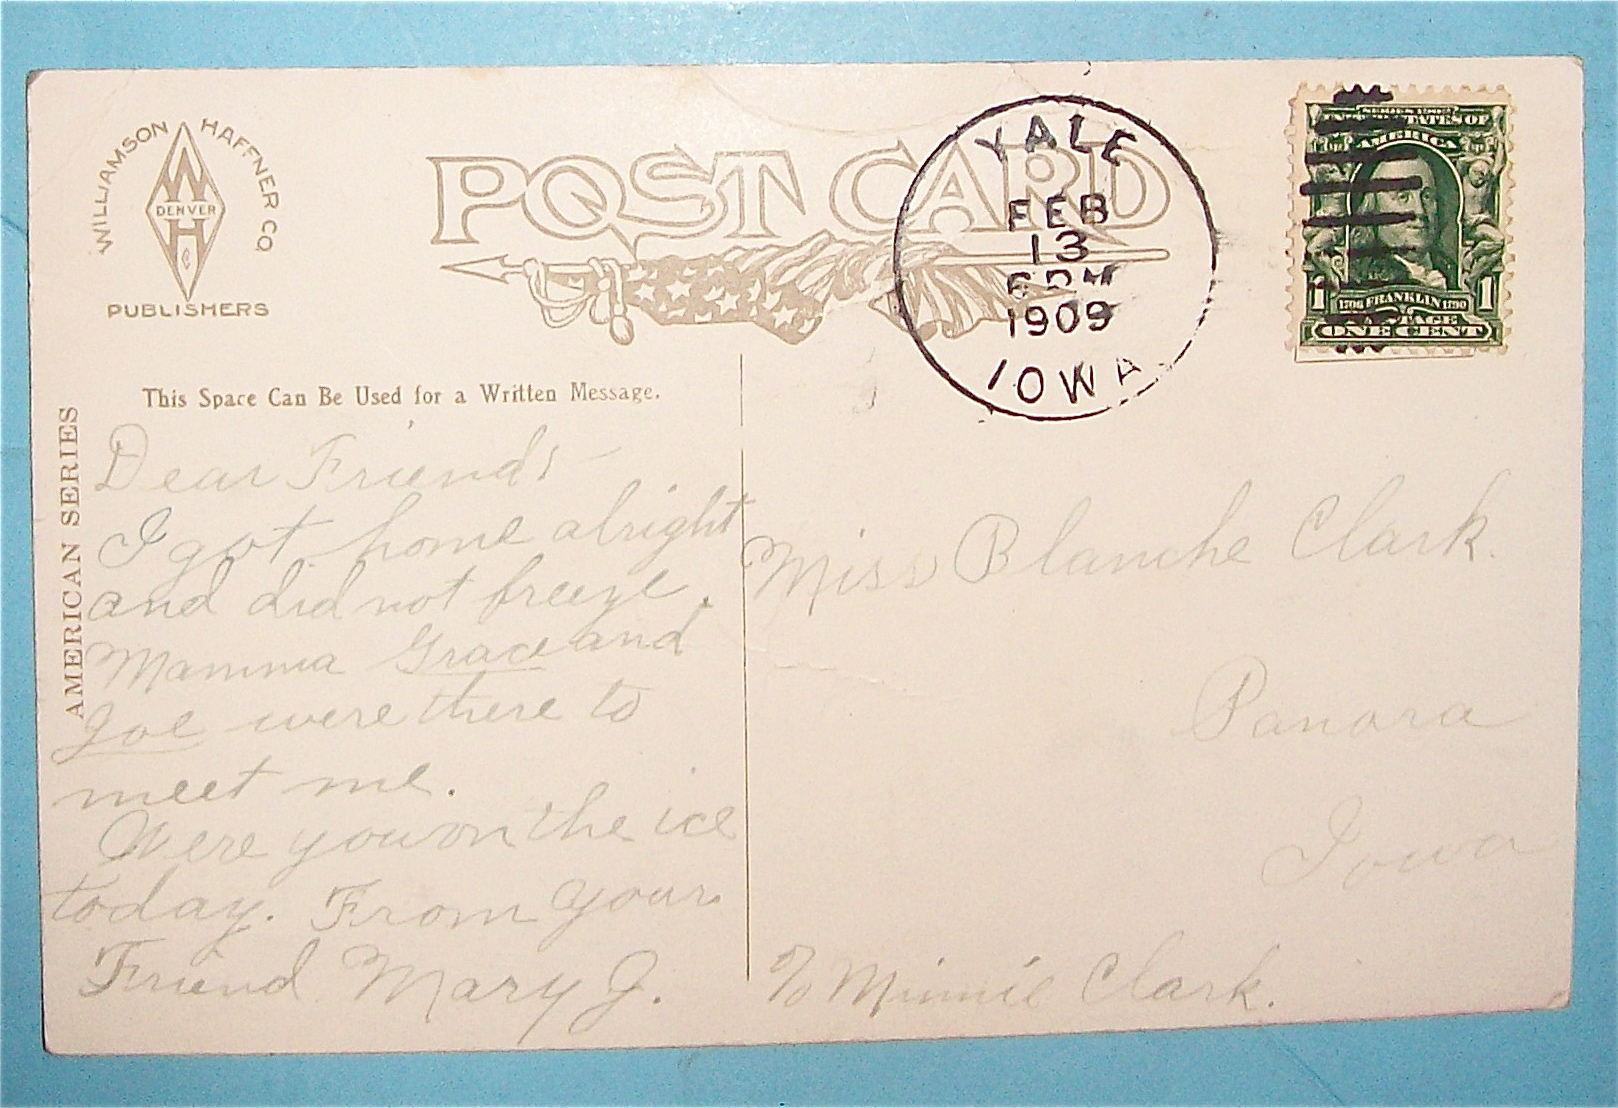 WILLIAMSON HAFFNER CO
W
DENVER
H
C
PUBLISHERS
POST CARD
YALE
FEB
13
6 PM
1909
IOWA
STATES OF
AMERICA
1 1706 FRANKLIN 1790 1
POSTAGE
ONE CENT
This Space Can Be Used for a Written Message.
AMERICAN SERIES
Dear Friends -
I got home alright
and did not freeze.
Mamma Grace and
Joe were there to
meet me.
Were you on the ice
today. From your
Friend Mary J.
Miss Blanche Clark.
Panora
Iowa
℅ Minnie Clark.